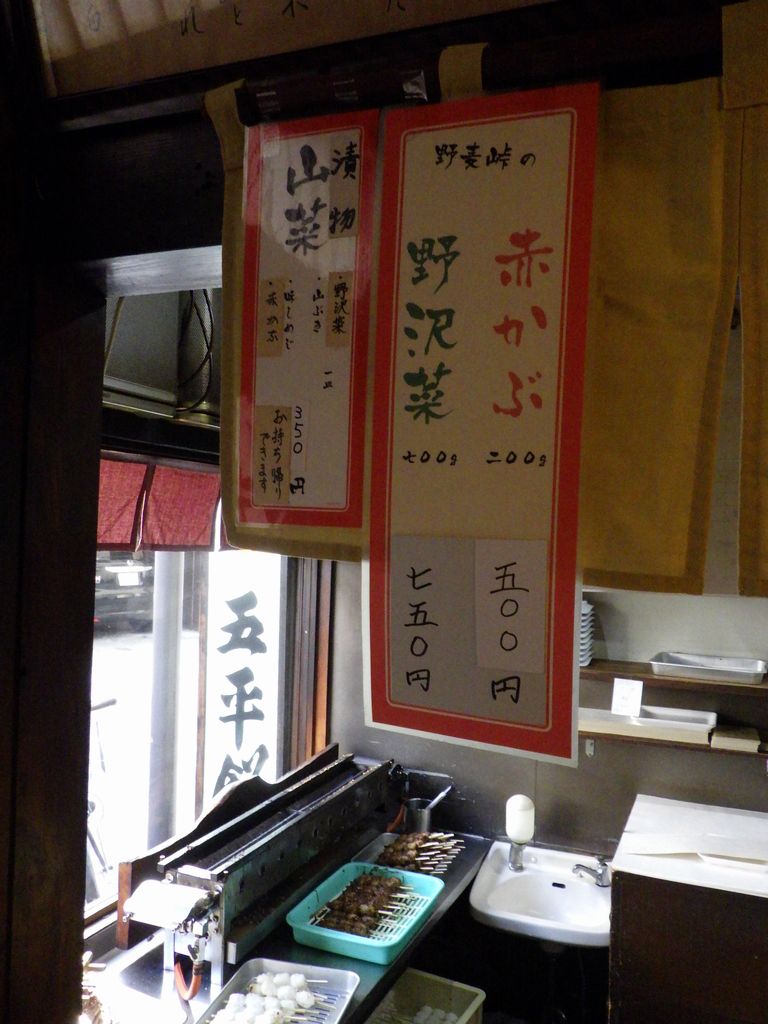 野麦峠の
赤かぶ
二00g
五〇〇円
野沢菜
七00g
七五〇円
漬物
山菜
・野沢菜
・山ぶき
・味しめじ
・赤かぶ
一皿
350円
お持ち帰り
できます
五平餅